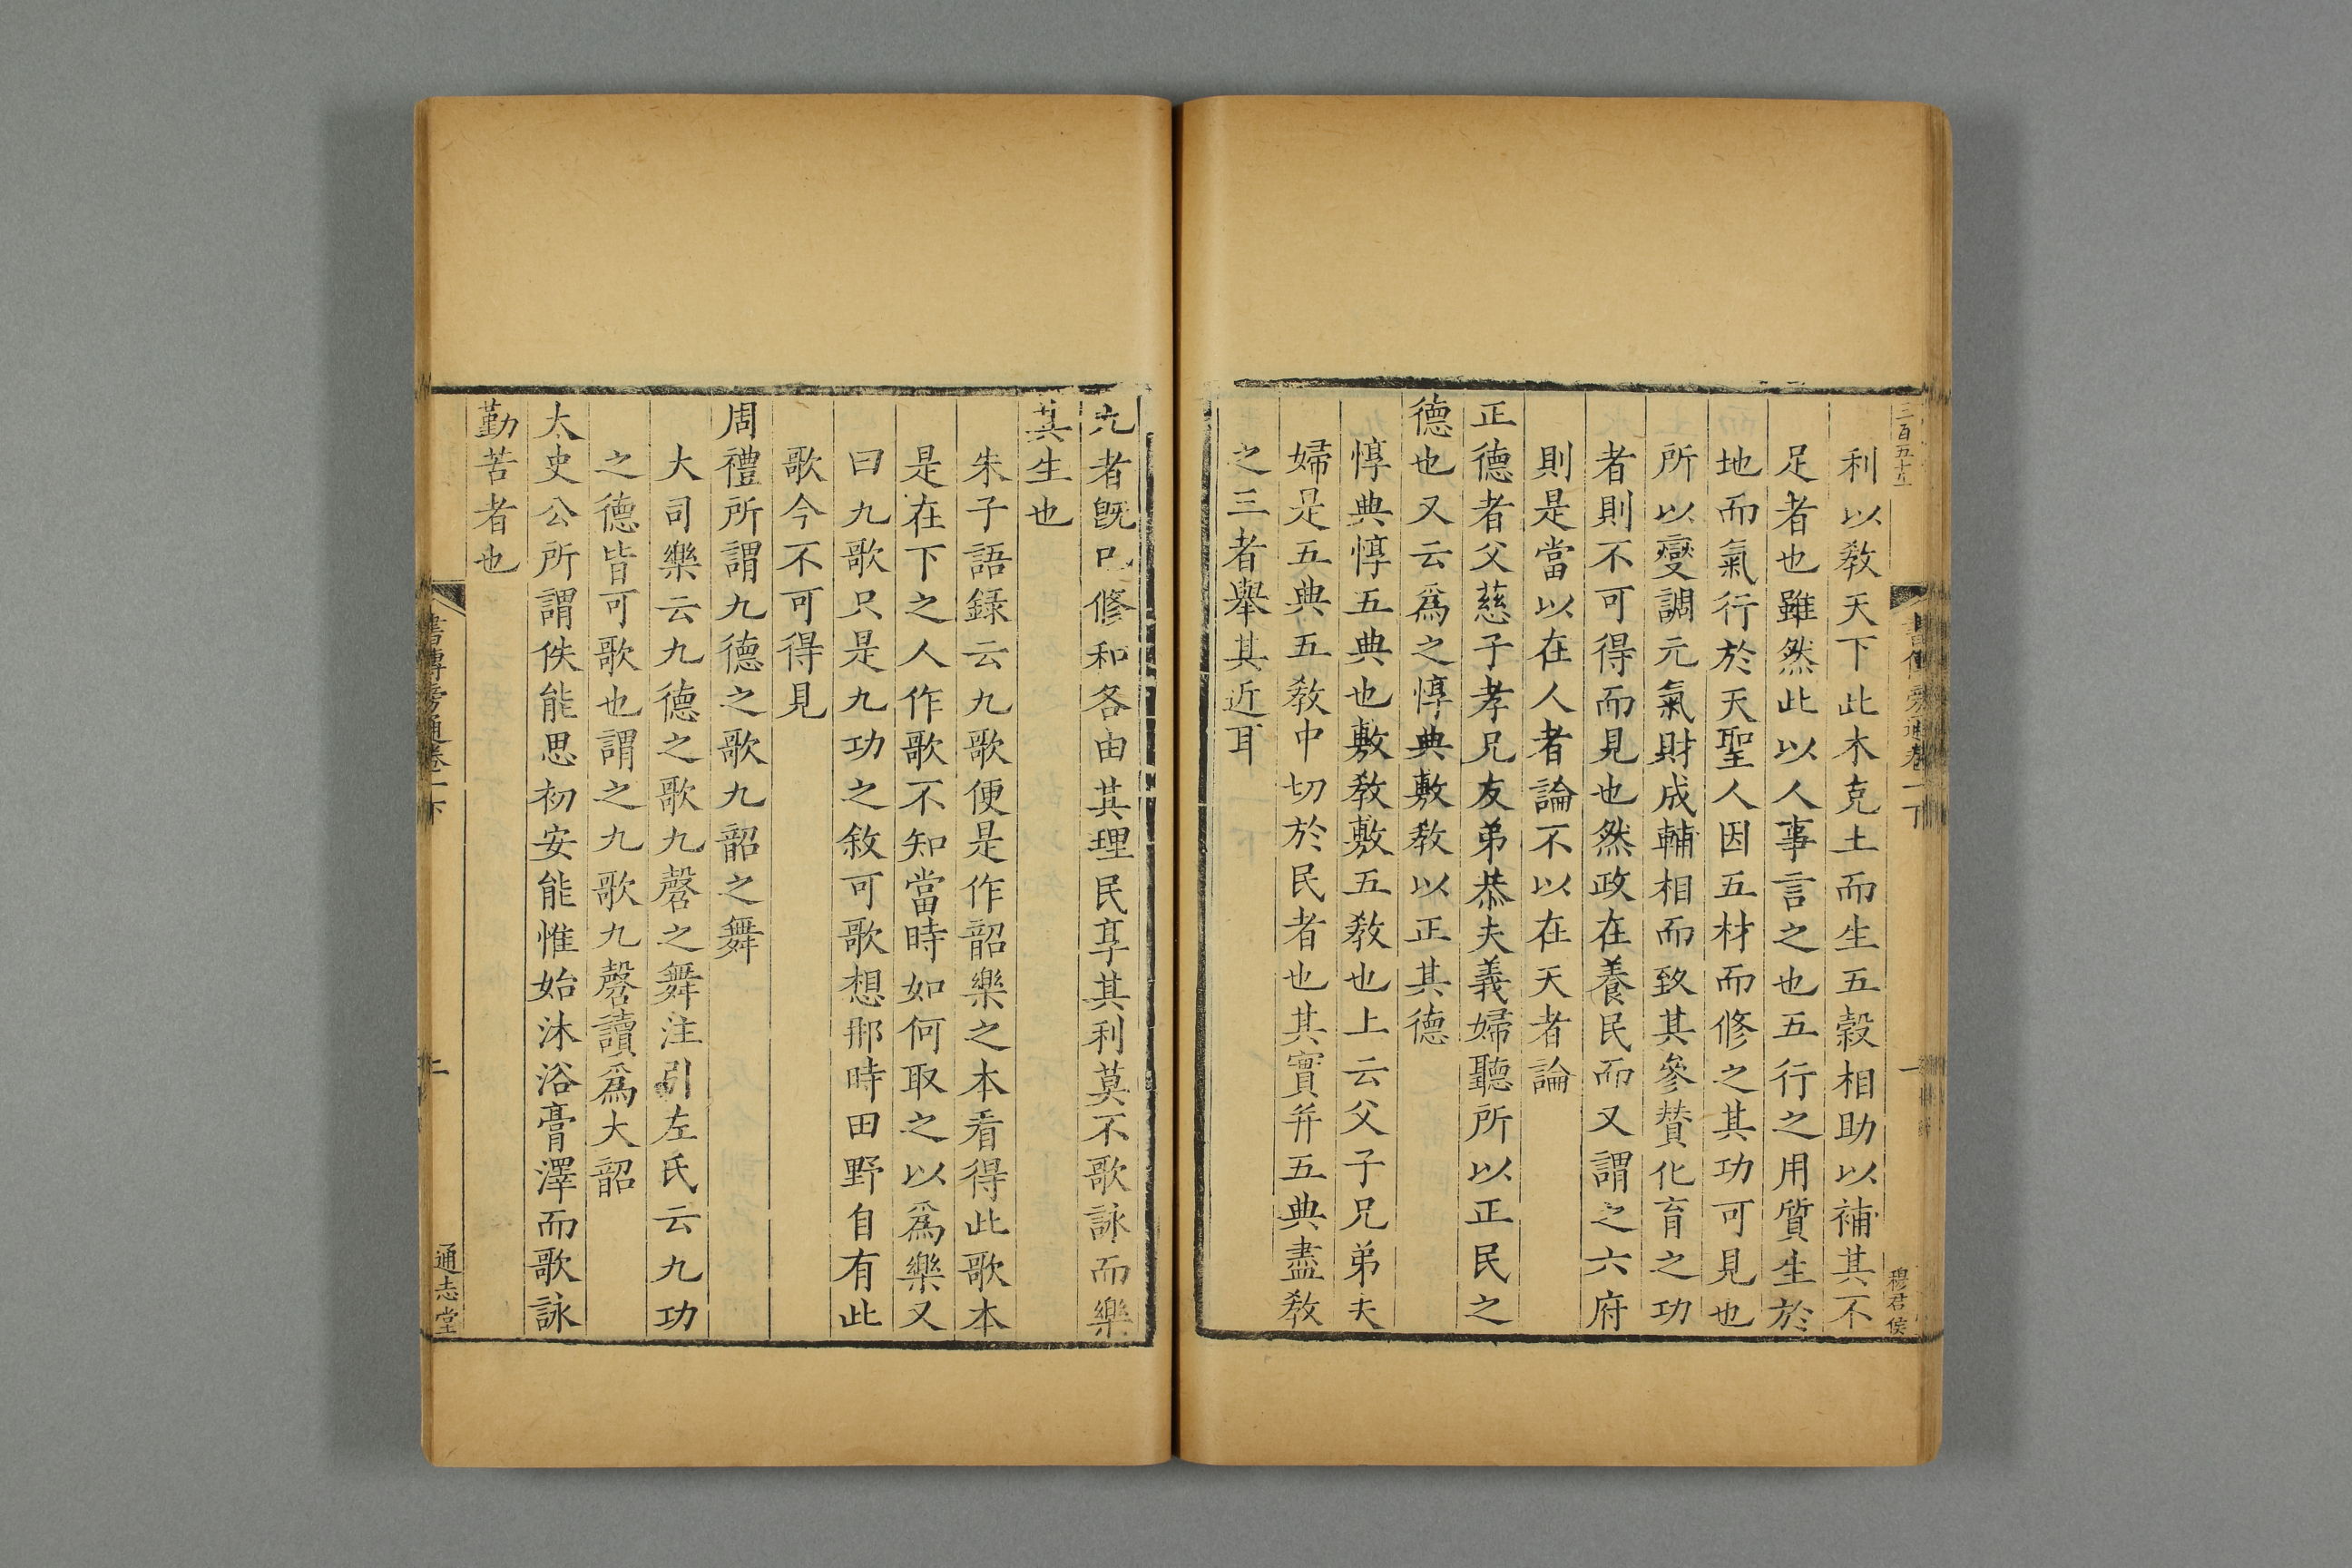 利以敎天下此木克土而生五穀相助以補其不
足者也雖然此以人事言之也五行之用質生於
地而氣行於天聖人因五材而修之其功可見也
所以燮調元氣財成輔相而致其參賛化育之功
者則不可得而見也然政在養民而又謂之六府
則是當以在人者論不以在天者論
正德者父慈子孝兄友弟恭夫義婦聽所以正民之
德也又云爲之惇典敷敎以正其德
惇典惇五典也敷敎敷五敎也上云父子兄弟夫
婦是五典五敎中切於民者也其實幷五典盡敎
之三者舉其近耳
穆君侯
九者旣已修和各由其理民享其利莫不歌詠而樂
其生也
朱子語録云九歌便是作韶樂之本看得此歌本
是在下之人作歌不知當時如何取之以爲樂又
曰九歌只是九功之敘可歌想那時田野自有此
歌今不可得見
周禮所謂九德之歌九韶之舞
大司樂云九德之歌九磬之舞注引左氏云九功
之德皆可歌也謂之九歌九磬讀爲大韶
太史公所謂佚能思初安能惟始沐浴膏澤而歌詠
勤苦者也
書傳旁通卷一下
二
通志堂